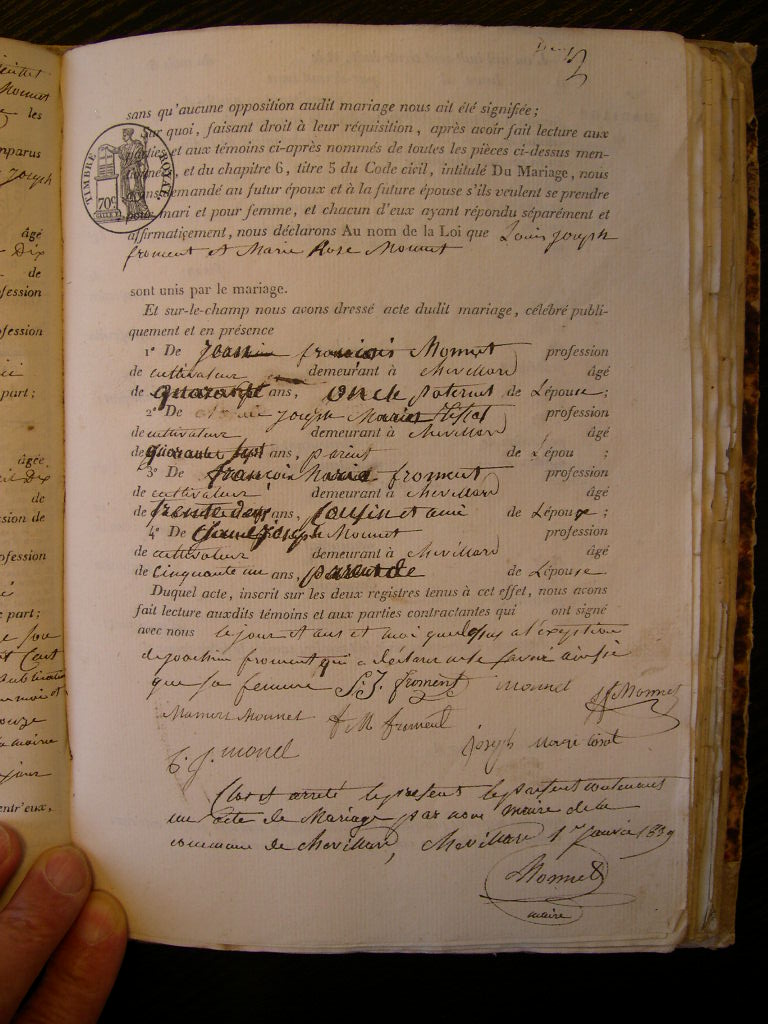 2
sans qu'aucune opposition audit mariage nous ait été signifiée;
Sur quoi, faisant droit à leur réquisition, après avoir fait lecture aux
parties et aux témoins ci-après nommés de toutes les pièces ci-dessus men-
et du chapitre 6, titre 5 du Code civil, intitulé Du Mariage, nous
demandé au futur époux et à la future épouse s'ils veulent se prendre
pour mari et pour femme, et chacun d'eux ayant répondu séparément et
affirmativement, nous déclarons Au nom de la Loi que Louis joseph
froment et Marie Rose Monnet
TIMBRE ROYAL
70c
sont unis par le mariage.
Et sur-le-champ nous avons dressé acte dudit mariage, célébré publi-
quement et en présence
1° De françois Monnet profession
de cultivateur demeurant à chevillard âgé
de quarante ans, oncle paternel de Lépouse;
2° De joseph Marie profession
de cultivateur demeurant à chevillard âgé
de quarante sept ans, parent de Lépou ;
3° De françois Marie froment profession
de cultivateur demeurant à chevillard âgé
de trente deux ans, cousin et ami de Lépoux;
4° De Claude joseph Monnet profession
de cultivateur demeurant à chevillard âgé
de cinquante un ans, parent de de Lépouse.
Duquel acte, inscrit sur les deux registres tenus à cet effet, nous avons
fait lecture auxdits témoins et aux parties contractantes qui ont signé
avec nous le jour et ans et moi que dessus a l'exeption
de joachim froment qui a déclaré ne le savoir ainsi
que sa femme L. J. froment monnet J f Monnet
Mamert Monnet f M froment
C. J. monel joseph marie
Clos et arreté le present contenant
un acte de Mariage par nous maire de la
commune de chevillard, chevillard 1er janvier 1839
Monnet
maire
les
mparus
joseph
âgé
Dix
de
ofession
ofession
part;
âgée
Dix
de
sion de
ofession
part;
maire
jour
entr'eux,